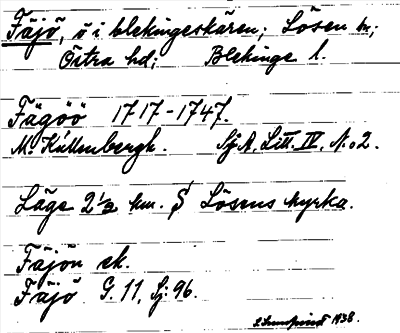 Fäjö, ö i blekingeskären; Lösen sn;
Östra hd; Blekinge l.
Fägöö 1717-1747.
M. Kullenbergh. Sj.A. Litt. IV, N:o 2.
Läge 2 1/2 km. S Lösens kyrka.
Fäjön ek.
Fäjö G. 11, Sj: 96.
1938.